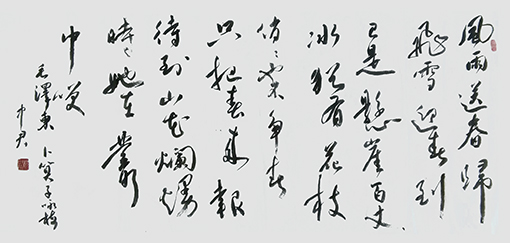 風雨送春歸
飛雪迎春到
已是懸崖百丈
冰猶有花枝
俏〻也不争春
只把春來報
待到山花爛熳
時她在叢
中咲
毛澤東卜算子咏梅